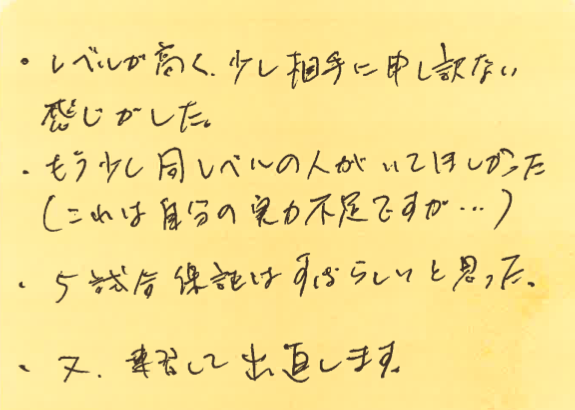 ・レベルが高く、少し相手に申し訳ない
感じがした。
・もう少し同レベルの人がいてほしかった
(これは自分の実力不足ですが…)
・5試合保証はすばらしいと思った。
・又、練習して出直します。